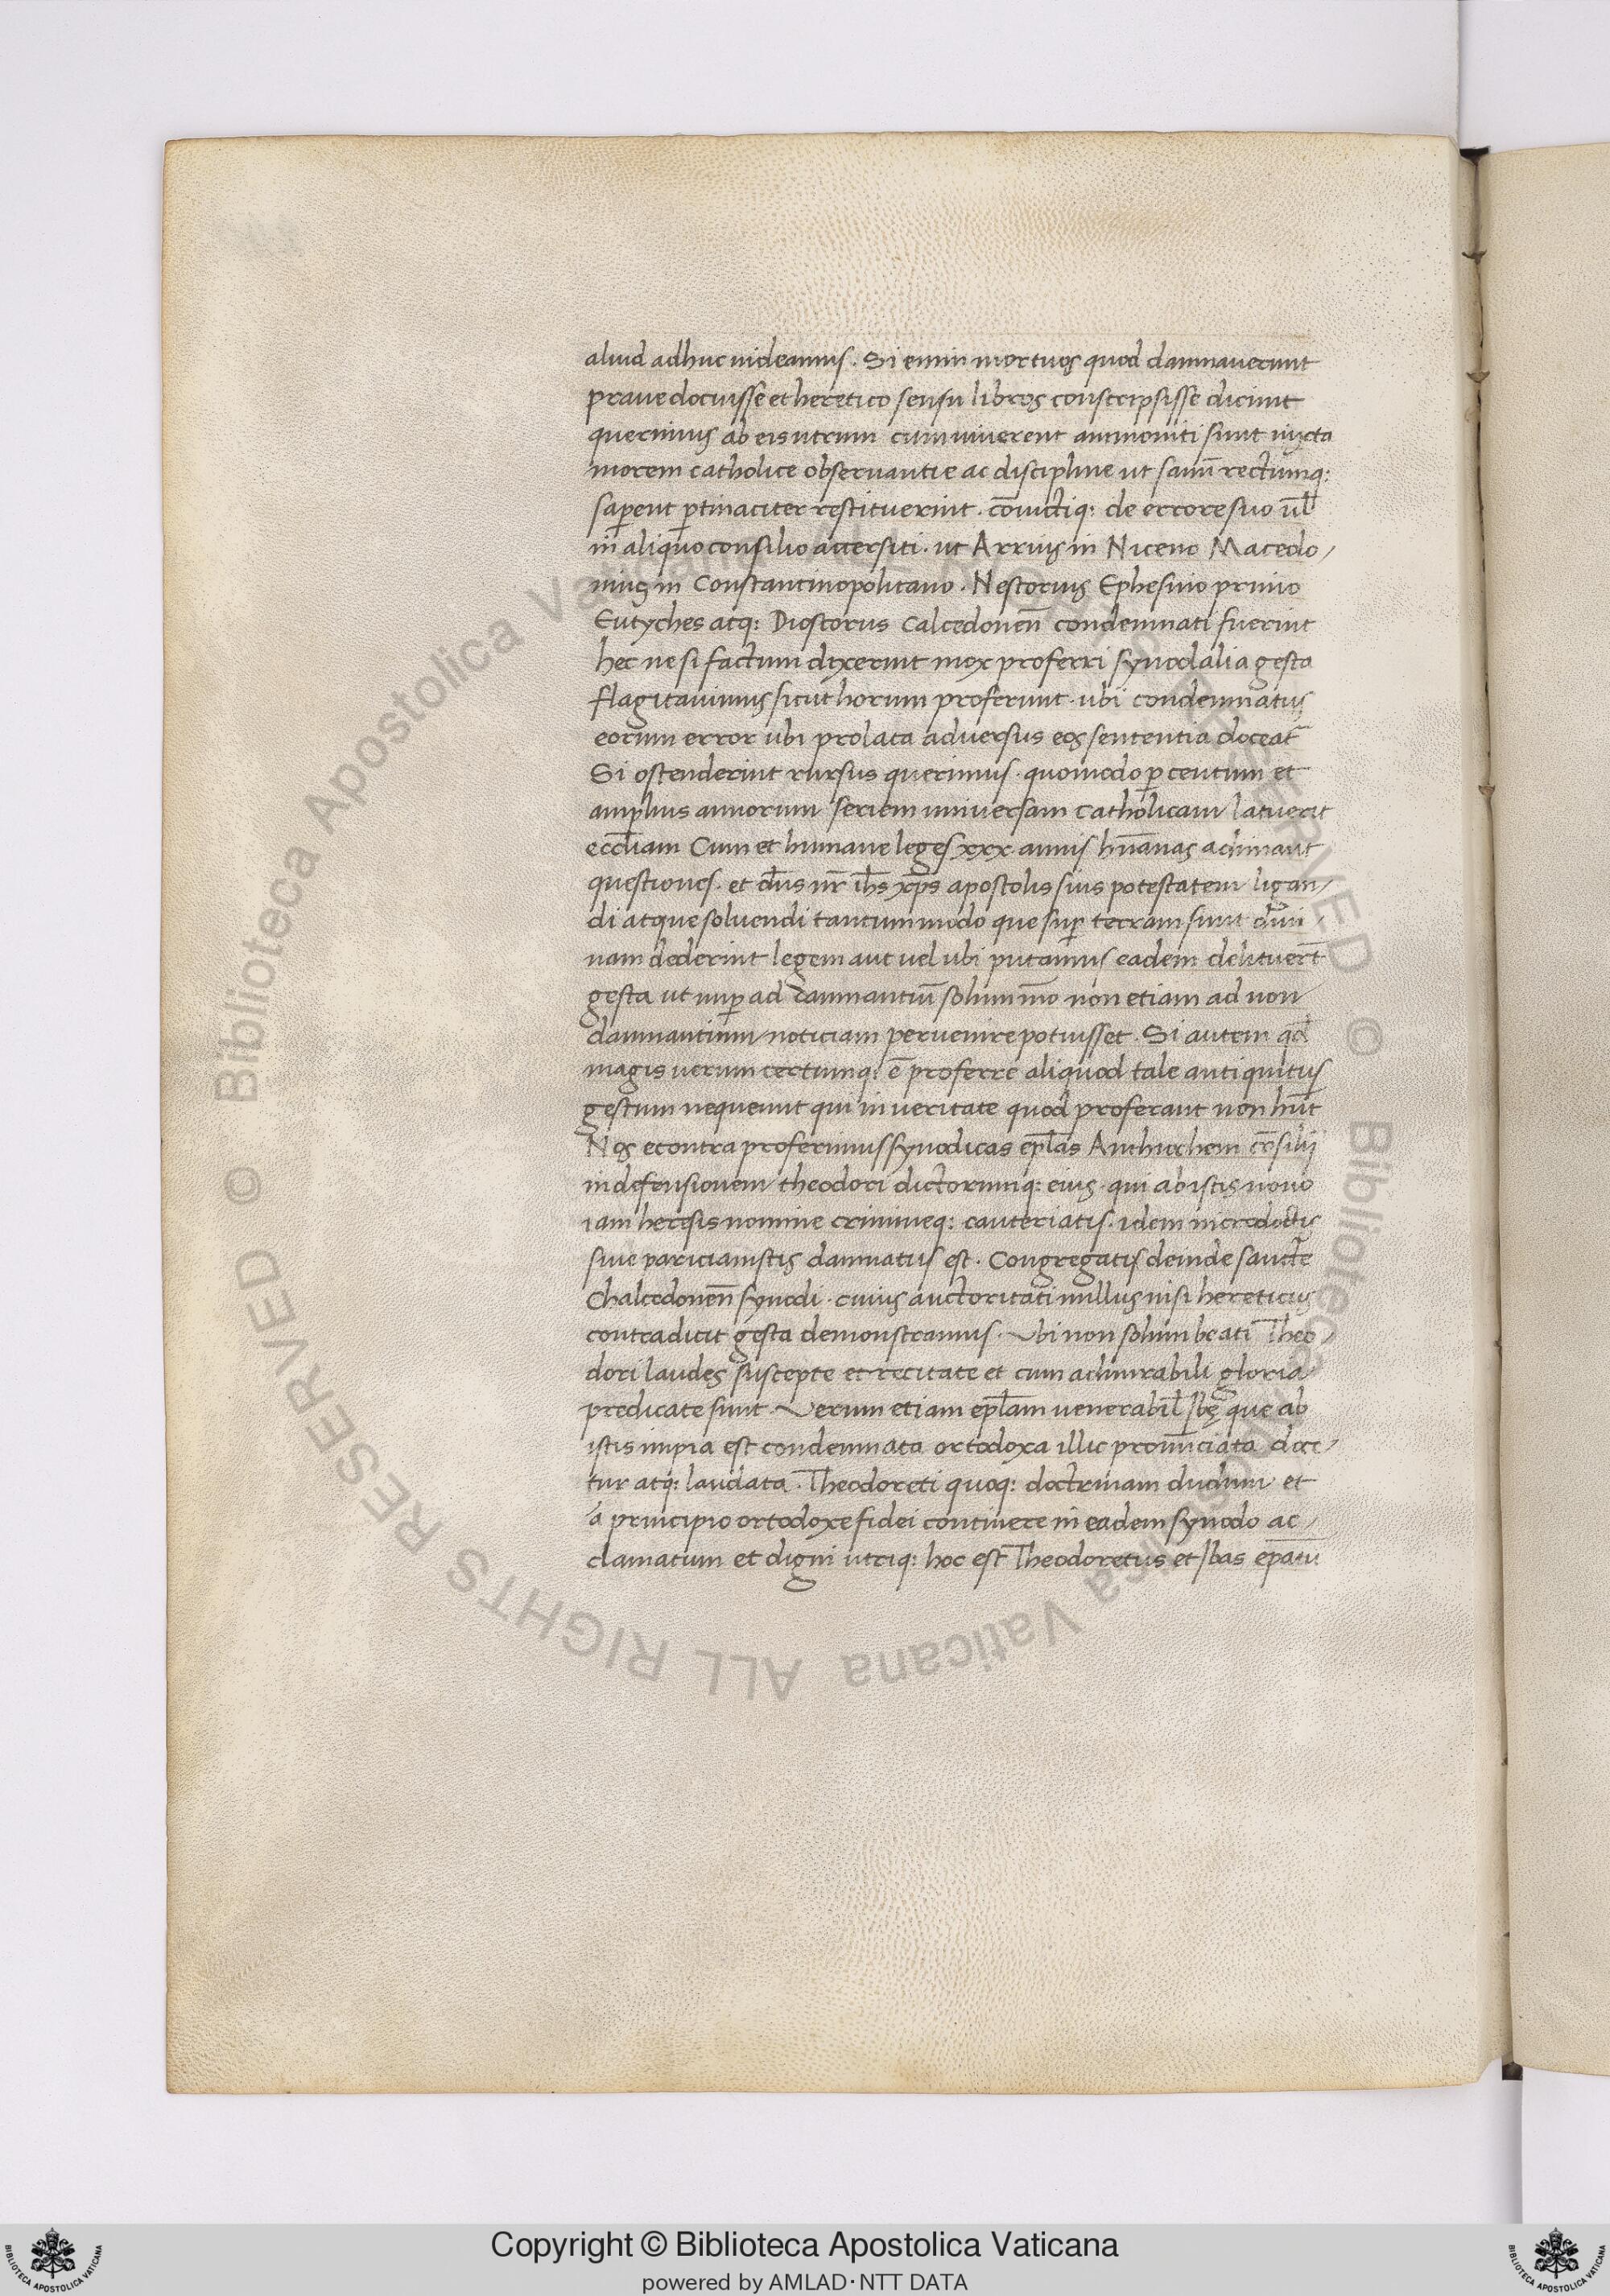 aliud adhuc uideamus. Si enim mortuos quod damnauerunt
praue docuisse et heretico sensu libros conscripsisse dicunt
querimus ab eis utrum cum uiuerent ammoniti sunt iuxta
morem catholice obseruantie ac discipline ut sanū rectumq:
saꝑent ꝑtinaciter restituerint. cōuictiq: de errore suo ūl
in aliquo consilio accersiti. ut Arrius in Niceno Macedo/
nius in Constantinopolitano. Nestorius Ephesino primo
Eutyches atq: Dioscorus Calcedonen̄ condemnati fuerint
hec ne si factum dixerint mox proferri synodalia gesta
flagitauimus sicut horum proferunt. ubi condemnatus
eorum error ubi prolata aduersus eos sententia doceat̄
Si ostenderint rursus querimus. quomodo ꝑ centum et
amplius annorum seriem uniuersam catholicam latuerit
eccl̄iam Cum et humane leges xxx annis hūanas adimant
questiones. et dn̄s nr̄ ih̄s xp̄s apostolis suis potestatem ligan/
di atque soluendi tantummodo que suꝑ terram sunt diui/
nam dederint legem aut uel ubi putamus eadem delituerīt
gesta ut nuꝑ ad damnantiū solummō non etiam ad non
damnantium noticiam peruenire potuisset. Si autem qd̄
magis uerum certumq: ē proferre aliquod tale antiquitus
gestum nequeunt qui in ueritate quod proferant non hn̄t
Nos econtra proferimus synodicas epl̄as Anthiocheni cōsilij
in defensionem theodori dictorumq: eius. qui ab istis nouo
iam heresis nomine crimineq: cauteriatis. idem
siue pariciamstis damnatus est. Congregatis deinde sancte
Chalcedonen̄ synodi. cuius auctoritati nullus nisi hereticus
contradicit gesta demonstramus. Vbi non solum beati Theo/
dori laudes suscepte et recitate et cum admirabili gloria
predicate sunt. Verum etiam epl̄am uenerabil̄ Ibę que ab
istis impia est condemnata ortodoxa illic pronūciata doce/
tur atq: laudata. Theodoreti quoq: doctrinam dudum et
a principio ortodoxe fidei continere in eadem synodo ac/
clamatum et digni utriq: hoc est Theodoretus et Ibas ep̄atu
Copyright © Biblioteca Apostolica Vaticana
powered by AMLAD·NTT DATA
© Biblioteca Apostolica Vaticana ALL RIGHTS RESERVED © Biblioteca Apostolica Vaticana ALL RIGHTS RESERVED
BIBLIOTECA APOSTOLICA VATICANA
BIBLIOTECA APOSTOLICA VATICANA